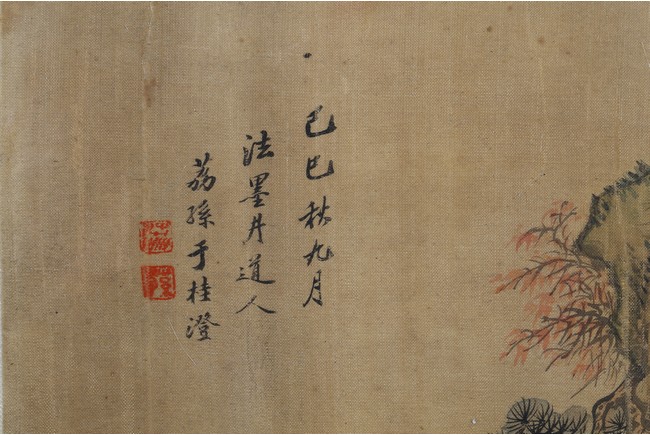 己巳秋九月
法墨井道人
荔孫于桂澄